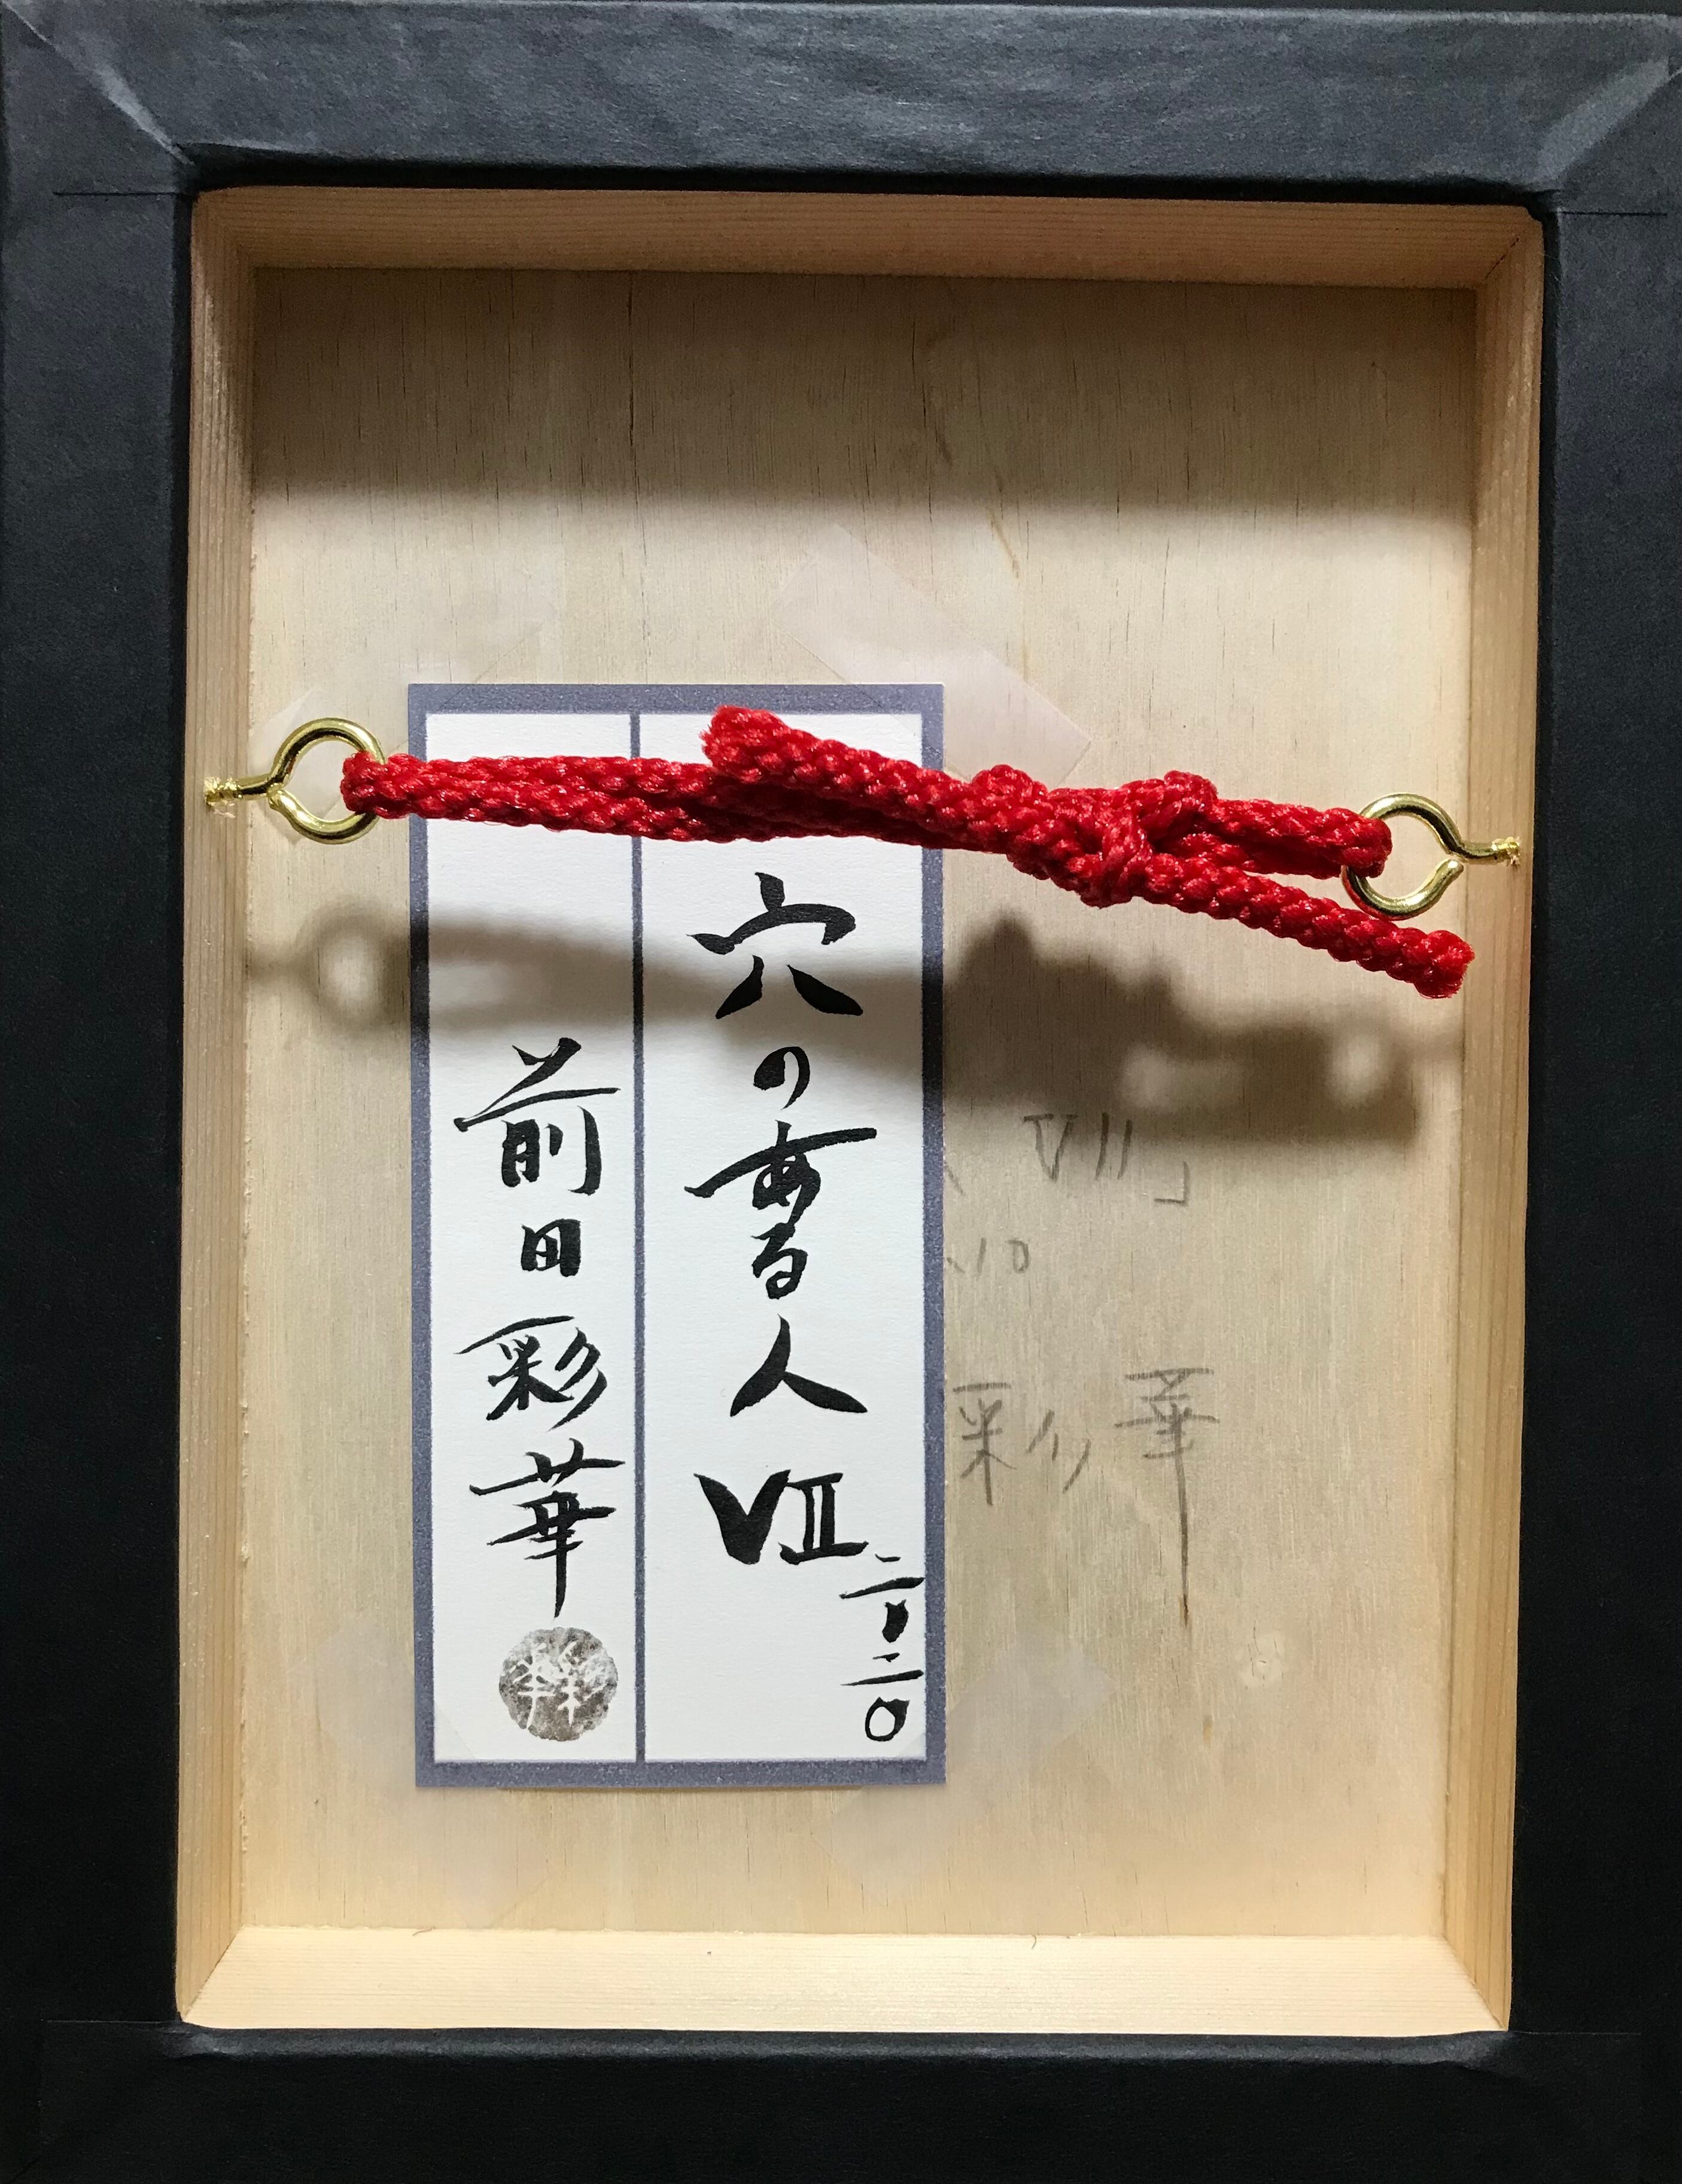 穴のある人 VII
二〇二〇
前田彩華
VII」
10
彩華